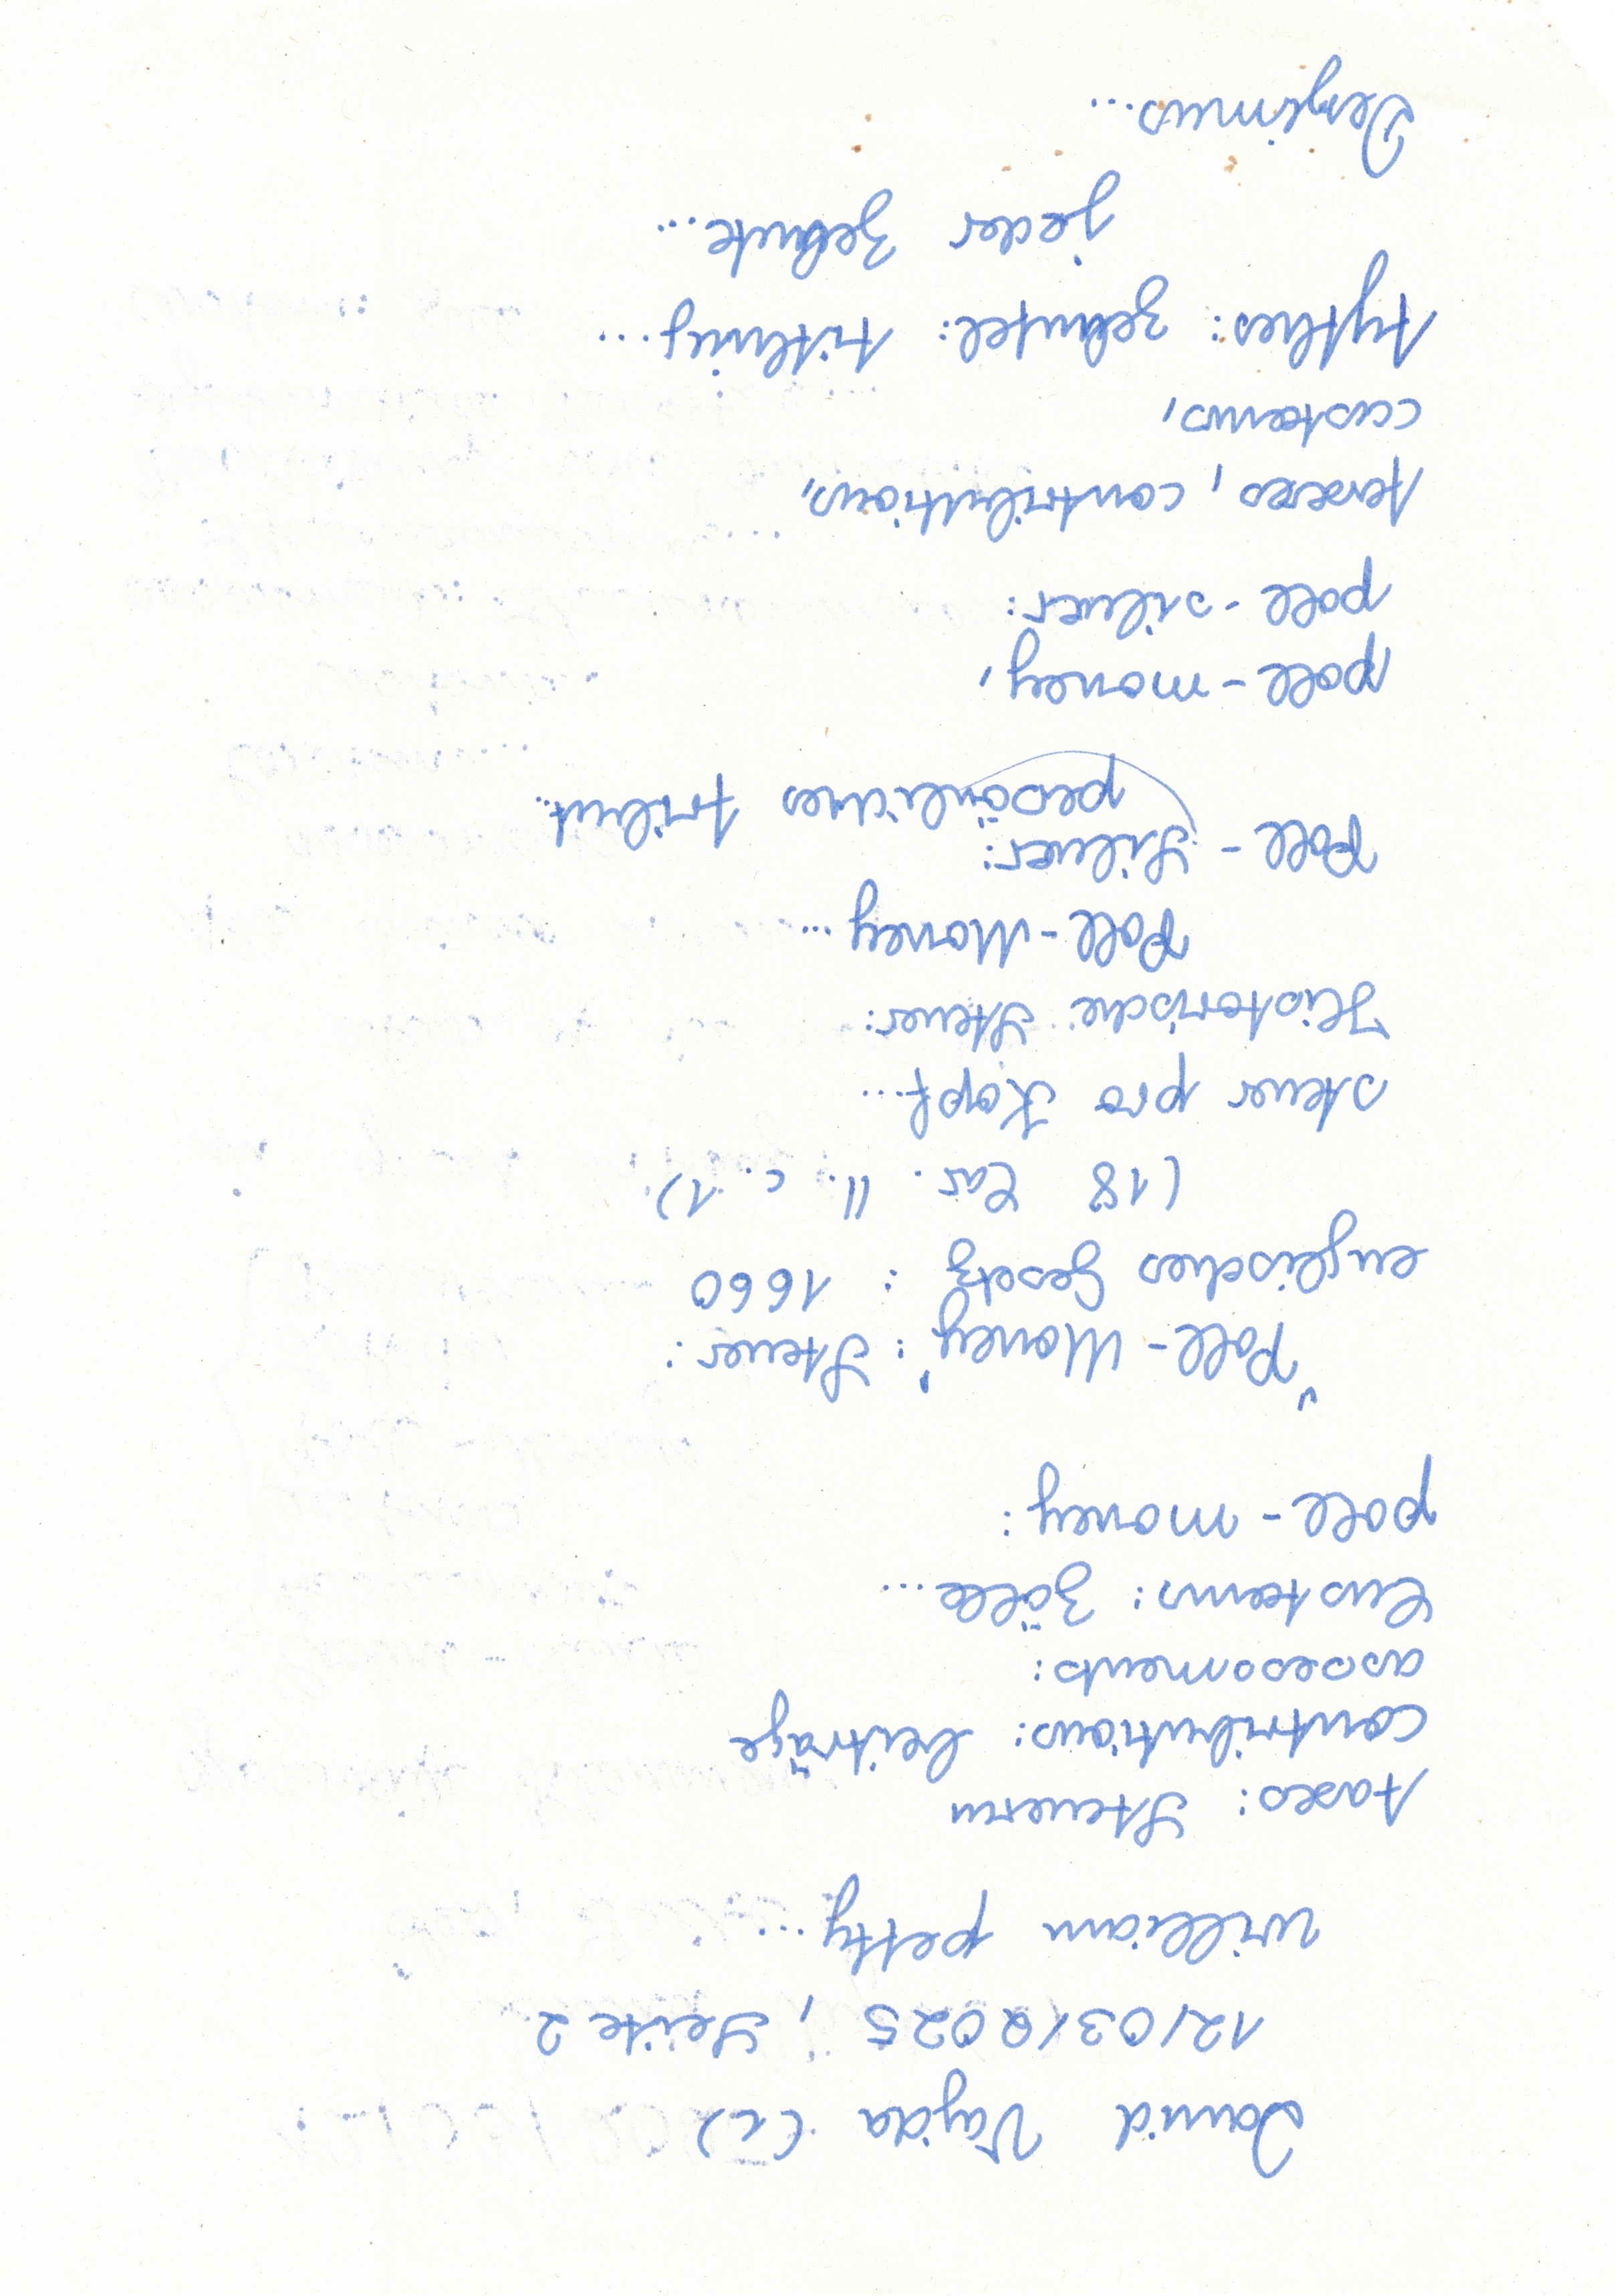 David Vajda (c)
12/03/2025, Seite 2
William petty...
taxes: Steuern
contributions: beiträge
assessments:
Customs: Zölle...
poll-money:
"Poll-Money": Steuer:
englisches Gesetz: 1660
(18 Car. II. c. 1)
steuer pro Kopf...
Historische Steuer:
Poll-Money...
Poll-Silver:
persönliches tribut...
poll-money,
poll-silver:
taxes, contributions,
customs,
tythes: zehntel: tithing...
jeder Zehnte...